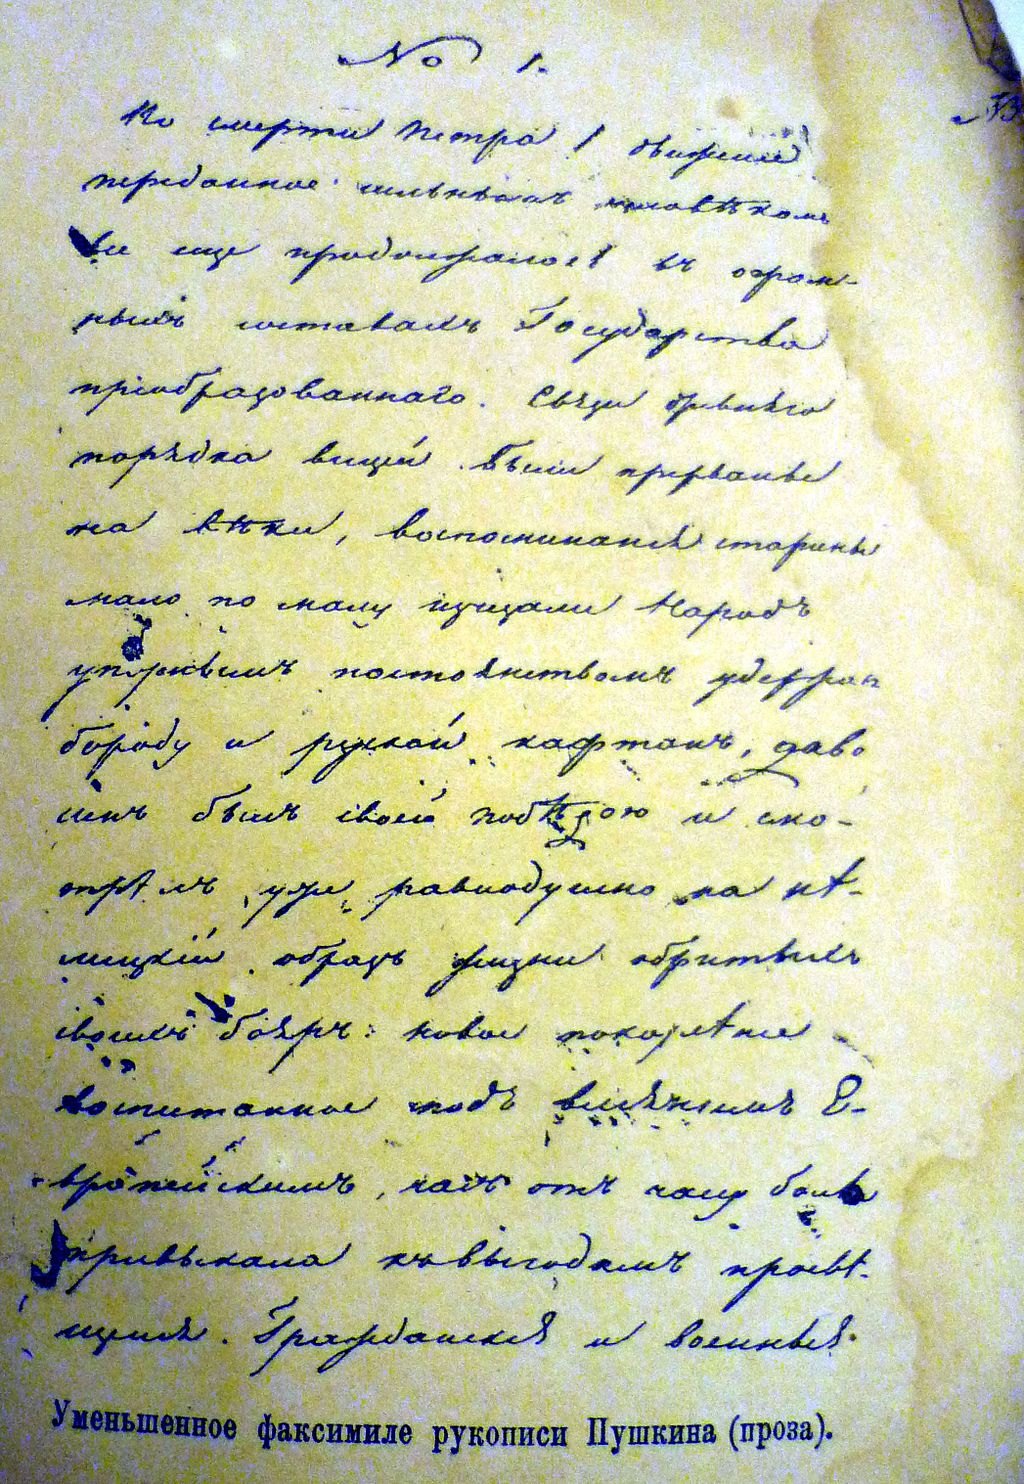 No 1.
33
По смерти Петра I движение
переданное сильнымъ человѣкомъ
все еще продолжалось въ огром-
ныхъ составахъ Государства
преобразованнаго. Связи древняго
порядка вещей были прерваны
на вѣки, воспоминанія старины
мало по малу изчезали Народъ
упорнымъ постоянствомъ удержав
бороду и русской кафтанъ, дово
ленъ былъ своей побѣдою и смо-
трѣлъ уже равнодушно на нѣ-
мецкій образъ жизни обритыхъ
своихъ бояръ: Новое поколѣніе
воспитанное подъ вліяніемъ Е-
вропейскимъ, часъ отъ часу болѣе
привыкало къ выгодамъ просвѣ-
щенія. Гражданскія и военныя
Уменьшенное факсимиле рукописи Пушкина (проза).